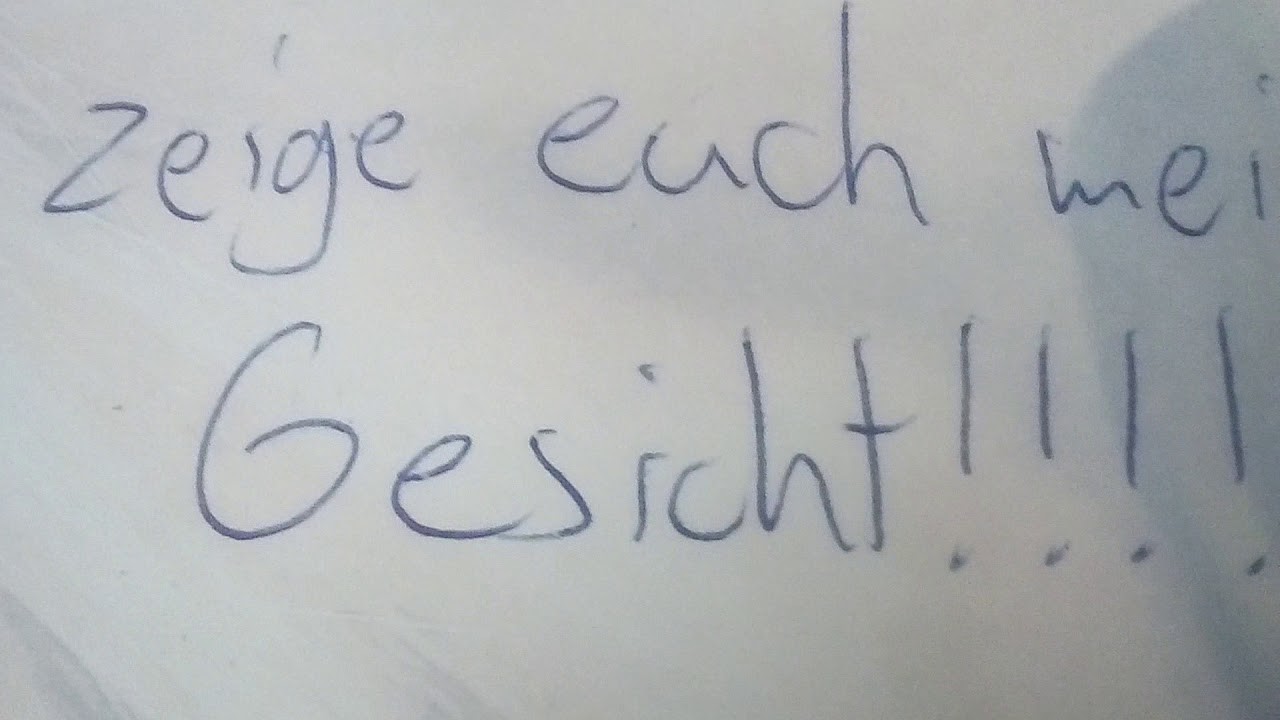 zeige euch mei
Gesicht!!!!